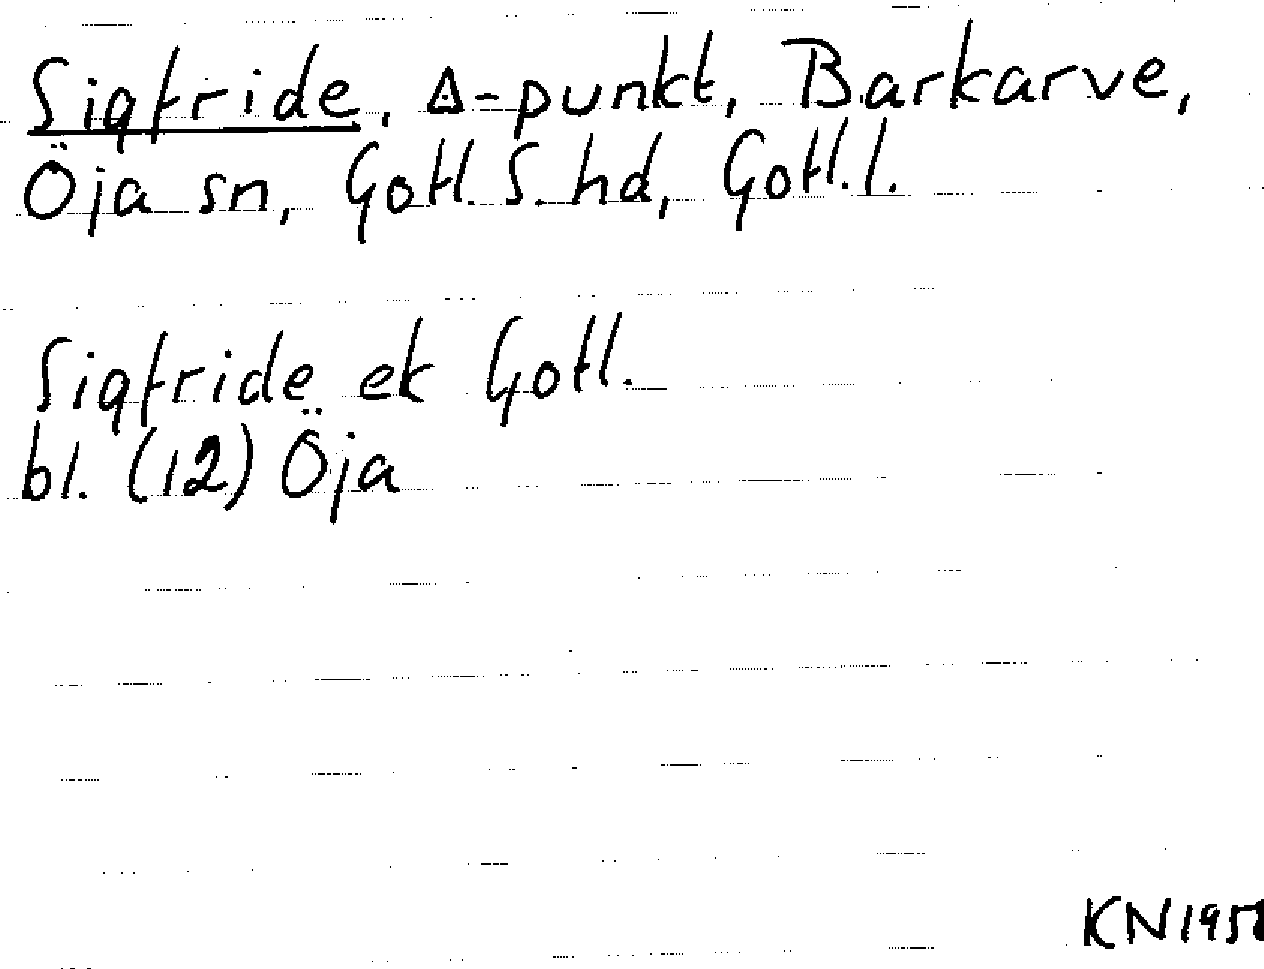 Sigfride, Δ-punkt, Barkarve,
Öja sn, Gotl. S. hd, Gotl. l.
Sigfride ek Gotl.
bl. (12) Öja
KN